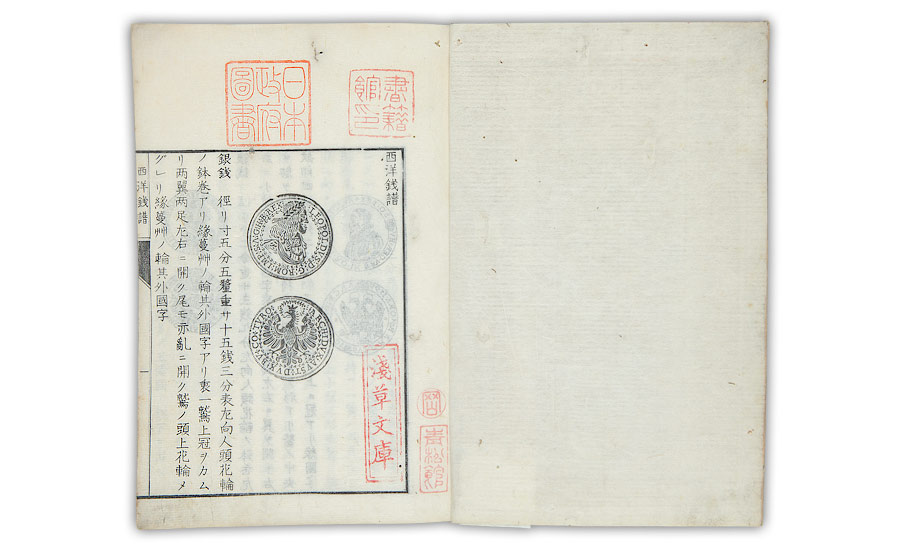 日本
政府
圖書
書籍
館印
西洋銭譜
LEOPOLDVS·D:G:ROM:IMP:S:A:G:H:B:REX
ARCHIDVX·AVST:DVX·BV:CO:TYRO
淺草文庫
銀銭　徑リ寸五分五釐重サ十五銭三分表左向人頭花輪
ノ鉢巻アリ緣蔓艸ノ輪其外國字アリ裏一鷲上冠ヲカム
リ两翼两足左右ニ開ク尾モ亦亂ニ開ク鷲ノ頭上花輪メ
グレリ緣蔓艸ノ輪其外國字
西洋銭譜
一